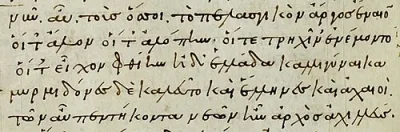 νῦν αὖ. τοὺς ὅσοι. τὸ πελασγικὸν ἄργος ἔναιο
οἵ τ' ἄλον οἵ τ' ἀλόπην. οἵ τε τρηχῖν' ἐνέμοντο
οἵ τ' εἶχον φθίην ἠδ' ἑλλάδα καλλιγύναικα
μυρμιδόνες δὲ καλεῦντο καὶ ἕλληνες καὶ ἀχαιοί.
τῶν αὖ πεντήκοντα νεῶν ἦν ἀρχὸς ἀχιλλεύς.